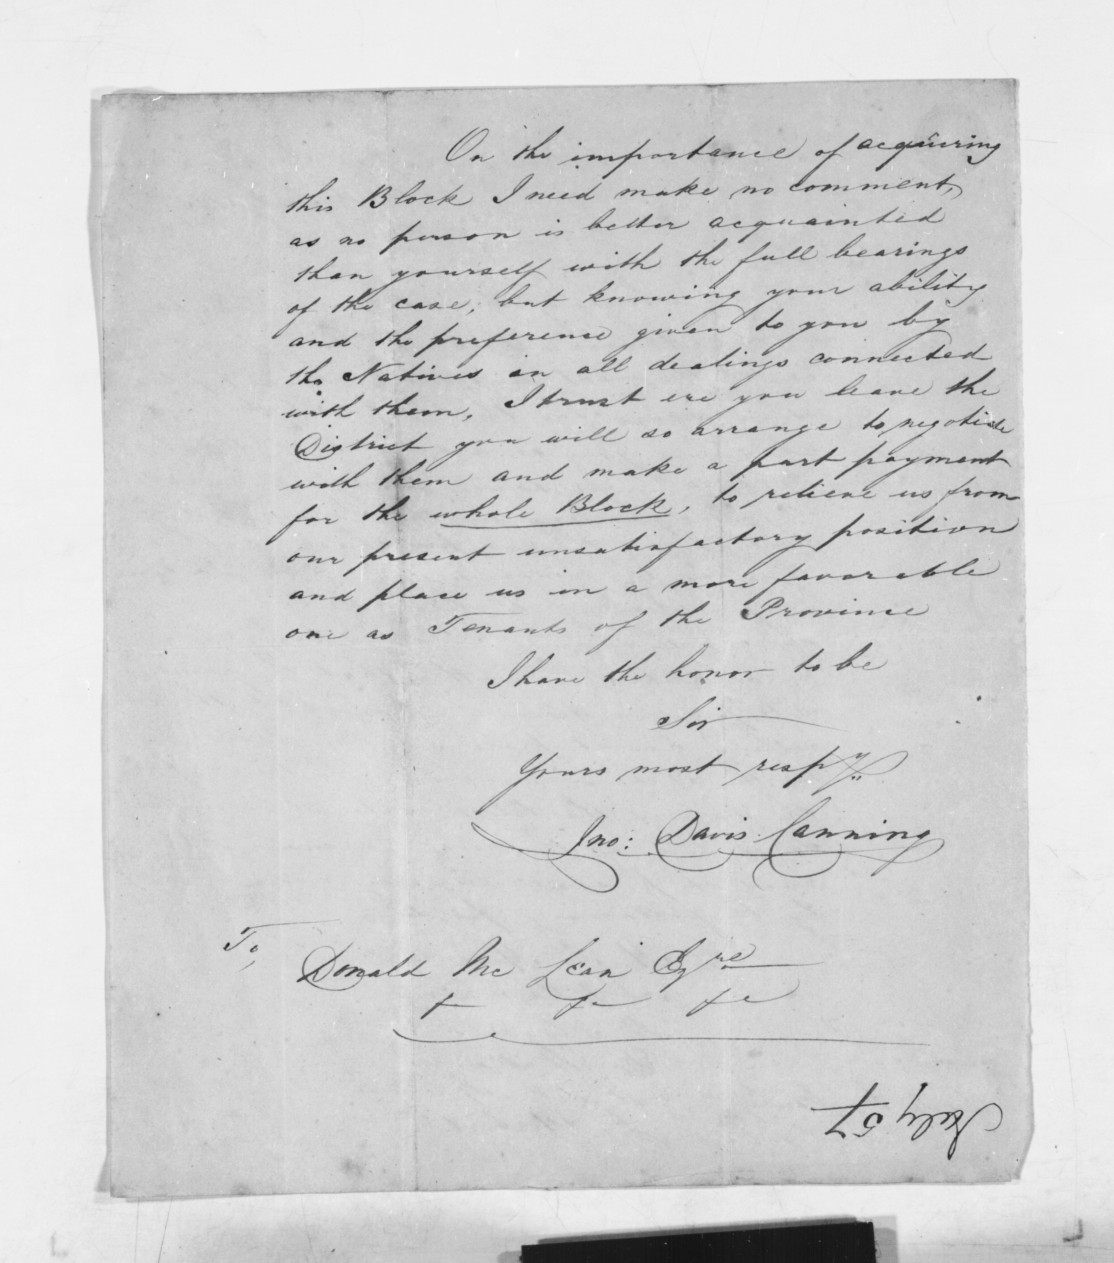 On the importance of acquiring
this Block I need make no comment,
as no person is better acquainted
than yourself with the full bearings
of the case; but knowing your ability
and the preference given to you by
the Natives in all dealings connected
with them, I trust ere you leave the
District you will so arrange to negotiate
with them and make a part payment
for the whole Block, to relieve us from
our present unsatisfactory position
and place us in a more favorable
one as Tenants of the Province
I have the honor to be
Sir
Yours most respy
Jno: Davis Canning
To,
Donald Mc Lean Esqre
July 57